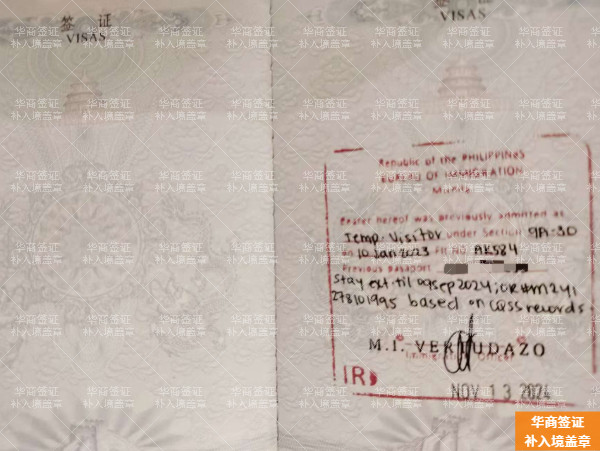 签 证
VISAS
签 证
VISAS
Republic of the PHILIPPINES
BUREAU OF IMMIGRATION
Manila
Bearer hereof was previously admitted as
Temp. Visitor under Section 9A-30
on 10 Jan 2023 Flt. No. AK584
Previous passport
Stay ext til 09Sep2024; OR#M241
278101995 based on CQSS records
M.I. VERMUDAZO
Immigration Officer
IRD
NOV 13 2024
华商签证
补入境盖章